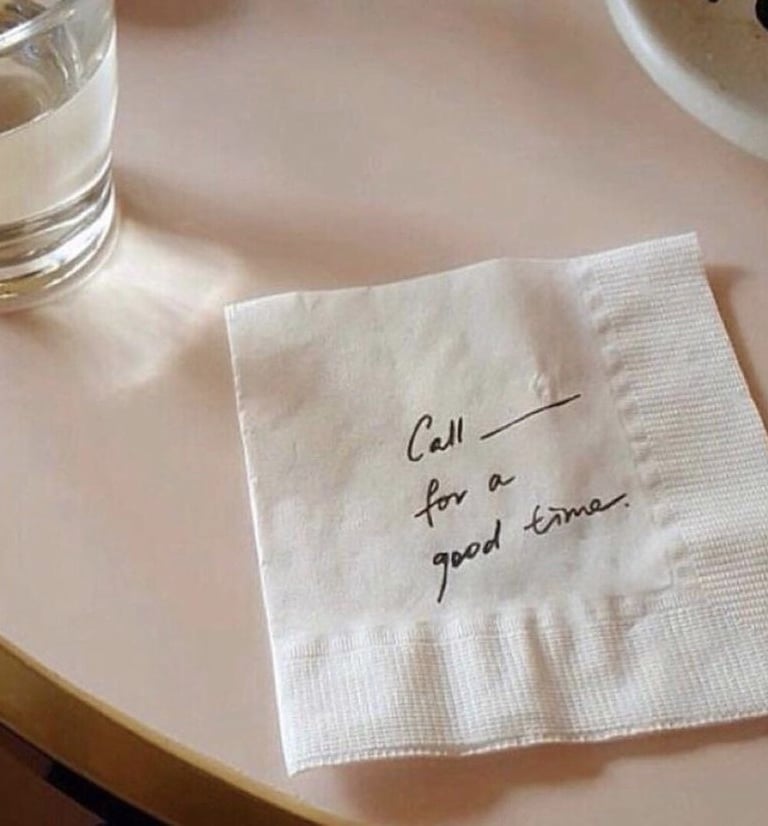 Call —
for a
good time.